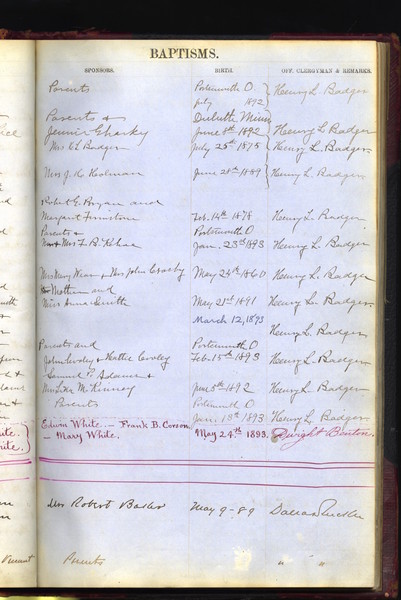 BAPTISMS.
SPONSORS. BIRTH. OFF. CLERGYMAN & REMARKS.
Parents Portsmouth O. Henry L. Badger
July 1892
Parents & Duluth Minn
Jennie Gharky June 8th 1892 Henry L. Badger
Mrs H L Badger July 25th 1875 Henry L. Badger
Mrs J. K. June 28th 1889 Henry L. Badger
Robert G. Bryan and
Margaret Feb. 14th 1878 Henry L. Badger
Parents & Portsmouth O
Mrs L. B. Jan. 23rd 1893 Henry L. Badger
Miss Mary & Mrs John Crosby May 24th 1860 Henry L. Badger
Mother and
Miss Anna Smith May 21st 1891 Henry L. Badger
March 12, 1893
Henry L. Badger
Parents and Portsmouth O
John & Hattie Feb. 15th 1893 Henry L. Badger
Samuel P. Adams &
Miss McKinney June 5th 1892 Henry L. Badger
Parents Portsmouth O
Jan. 18th 1893 Henry L. Badger
Edwin White. — Frank B. Corson May 24th 1893. Dwight Benton
— Mary White.
Mrs Robert May 9 - 89
Parents " "